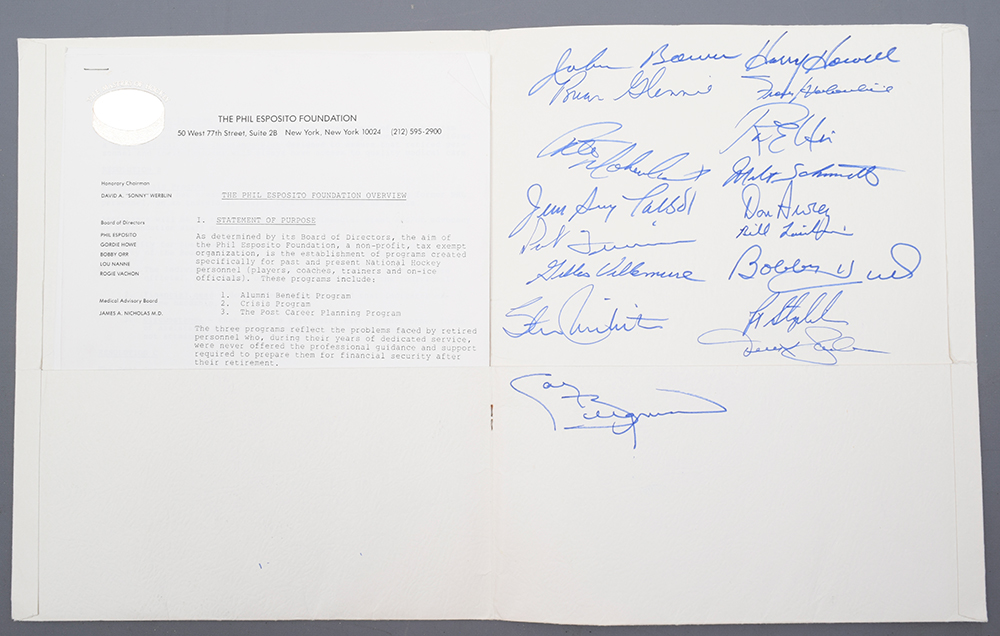 THE PHIL ESPOSITO FOUNDATION
50 West 77th Street, Suite 2B New York, New York 10024 (212) 595-2900
Honorary Chairman
DAVID A. "SONNY" WERBLIN
Board of Directors
PHIL ESPOSITO
GORDIE HOWE
BOBBY ORR
LOU NANNE
ROGIE VACHON
Medical Advisory Board
JAMES A. NICHOLAS M.D.
THE PHIL ESPOSITO FOUNDATION OVERVIEW
I. STATEMENT OF PURPOSE
As determined by its Board of Directors, the aim of
the Phil Esposito Foundation, a non-profit, tax exempt
organization, is the establishment of programs created
specifically for past and present National Hockey
personnel (players, coaches, trainers and on-ice
officials). These programs include:
1. Alumni Benefit Program
2. Crisis Program
3. The Post Career Planning Program
The three programs reflect the problems faced by retired
personnel who, during their years of dedicated service,
were never offered the professional guidance and support
required to prepare them for financial security after
their retirement.
John Bower Harry Howell
Brian Glennie
Milt Schmidt
Jean Guy Talbot
Don Awrey
Gilles Villemure
Bobby Hull